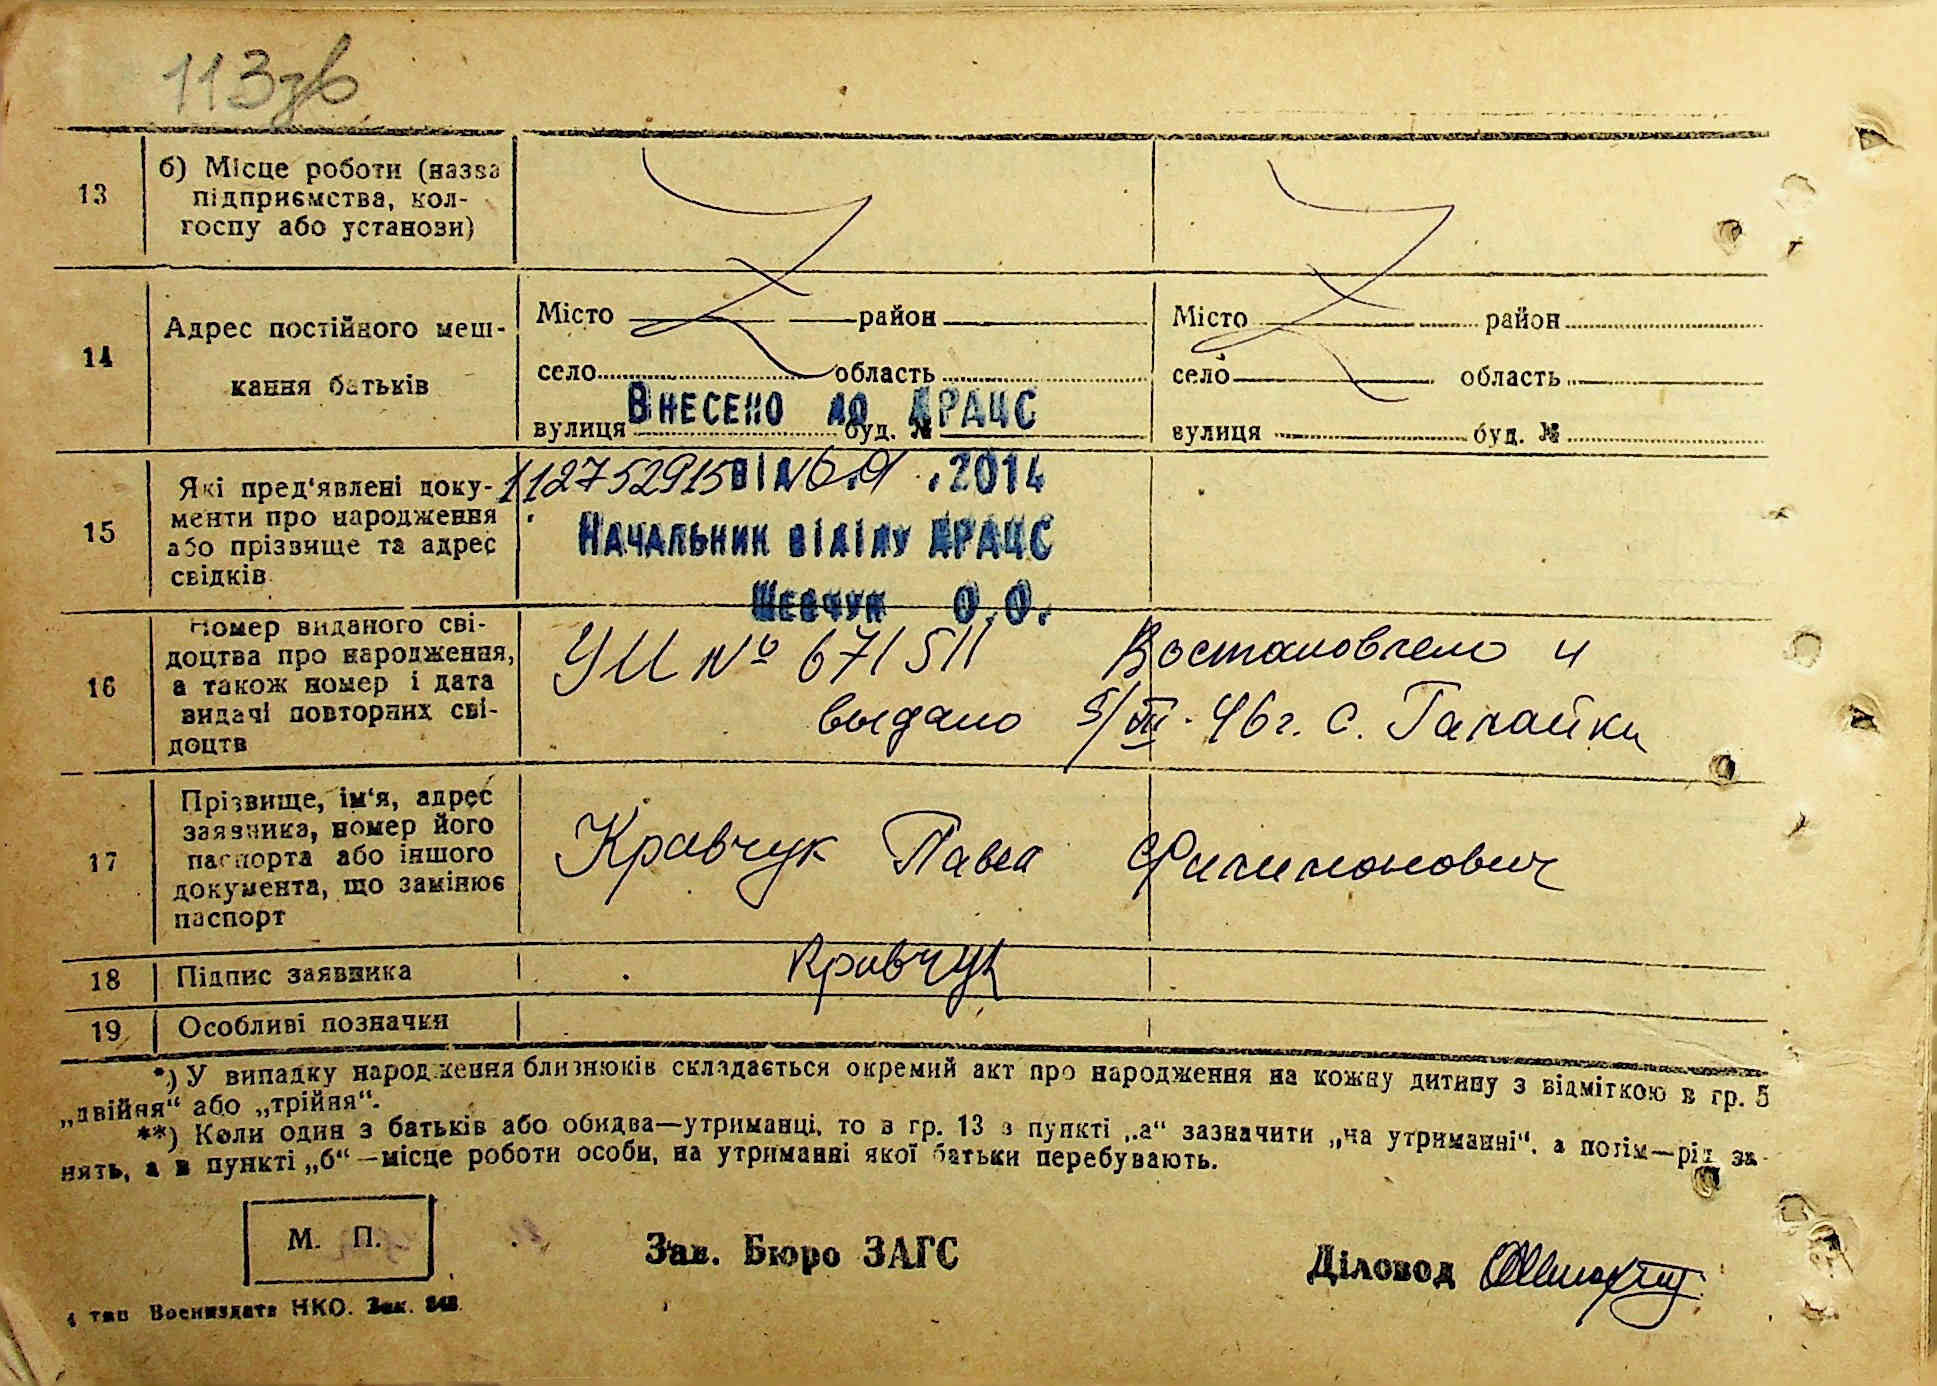 113зв
13
б) Місце роботи (назва
підприємства, кол-
госпу або установи)
14
Адрес постійного меш-
кання батьків
Місто район
село область
вулиця буд. №
Місто район
село область
вулиця буд. №
Внесено до ДРАЦС
112752915 від .2014
Начальник відділу ДРАЦС
Шевчук О.О.
15
Які пред'явлені доку-
менти про народження
або прізвище та адрес
свідків
16
Номер виданого сві-
доцтва про народження,
а також номер і дата
видачі повторних сві-
доцтв
УИ № 671511 Востановлено и
выдано 5/III. 46г. с. Галайки
17
Прізвище, ім'я, адрес
заявника, номер його
паспорта або іншого
документа, що замінює
паспорт
Кравчук Павел Филимонович
18
Підпис заявника
Кравчук
19
Особливі позначки
*) У випадку народження близнюків складається окремий акт про народження на кожну дитину з відміткою в гр. 5
„двійня“ або „трійня“.
**) Коли один з батьків або обидва—утриманці, то в гр. 13 в пункті „а“ зазначити „на утриманні“, а потім—рід за-
нять, а в пункті „б“—місце роботи особи, на утриманні якої батьки перебувають.
М. П.
Зав. Бюро ЗАГС
Діловод
4 тип Воениздата НКО. Зак.